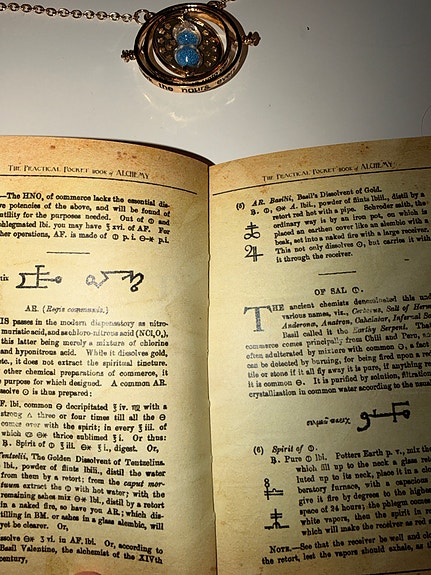 the hours
THE PRACTICAL POCKET BOOK of ALCHEMY
—The HNO, of commerce lacks the essential dis-
ve potencies of the above, and will be found of
utility for the purposes needed. Out of
phlegmated lbi. you may have ʒ xvi. of AF. For
her operations, AF. is made of ☉ p. i. ⊖* p.i.
his
AR. (Regis communis.)
IS passes in the modern dispensatory as nitro-
muriatic acid, and as chloro-nitrous acid (NCl₂O₂),
this latter being merely a mixture of chlorine
and hyponitrous acid. While it dissolves gold,
etc., it does not extract the spiritual tincture.
other chemical preparations of commerce, it
purpose for which designed. A common AR.
ssolve ☉ is thus prepared:
F. lbi. common ⊖ decripitated ℥ iv. with a
strong three or four times till all the ⊖
comes over with the spirit; in every ℥ iii. of
which ⊖* thrice sublimed ℥ i. Or thus:
B. Spirit of ℥ iii. ⊖* ℥ i., digest. Or,
Tentzelii, The Golden Dissolvent of Tentzelius.
lbi., powder of flints lbiii., distil the water
from them by a retort; from the caput mor-
tuum extract the with hot water; with the
remaining ashes mix ⊖* lbi., distil by a retort
in a naked fire, so have you AR.; which dis-
tilling in BM. or ashes in a glass alembic, will
yet be clearer. Or,
ssolve ⊖* ℥ vi. in AF. lbi. Or, according to
Basil Valentine, the alchemist of the XIVth
century,
THE PRACTICAL POCKET BOOK of ALCHEMY
(5) AR. Basini, Basil's Dissolvent of Gold.
B. ⊖* A. lbi., powder of flints lbiii., distil by a
retort red hot with a pipe. Schroder adds, the
ordinary way is by an iron pot, on which is
placed an earthen cover like an alembic with a
beak, set into a naked fire with a large receiver.
This not only dissolves ☉, but carries it with
it through the receiver.
OF SAL
THE ancient chemists denominated this under
various names, viz., Cerberus, Salt of Hermes,
Anderona, Anatron, Cabalatar, Infernal
Basil called it the Earthy Serpent. That
commerce comes principally from Chili and Peru, and
often adulterated by mixture with common ⊖, a fact
can be detected by burning, for being fired upon a red
tile or stone if it all fly away it is pure, if anything
it is common ⊖. It is purified by solution, filtration
crystallization in common water according to the usual
(6) Spirit of
B. Pure lbi. Potters Earth p. v., mix the
which fill up to the neck a glass
luted up to its neck, place it in a
beratory furnace, with a capacious
give it fire by degrees to the highest
space of 24 hours; the phlegm comes
white vapors, then the spirit in
which will make the receiver as red as
NOTE.—See that the receiver be well and close
the retort, lest the vapors should exhale, as